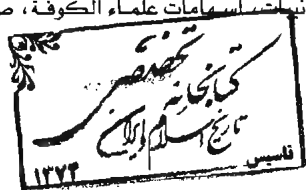 إسهامات علماء الكوفة، ص
كتابخانه تخصصى
تاريخ اسلام و ايران
تاسيس
۱۳۷۴